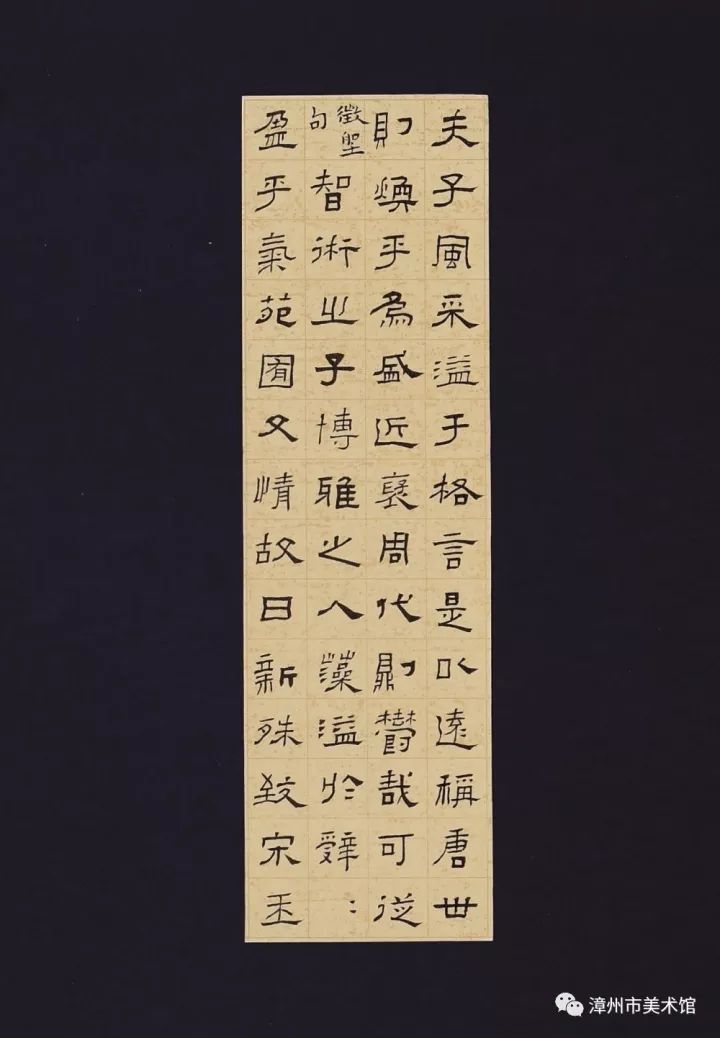 夫子風采溢于格言是以遠稱唐世
則煥乎為盛近褒周代則鬱哉可從
徵聖
句
智術之子博雅之人藻溢於辭：
盈乎氣苑囿文情故日新殊致宋玉
漳州市美术馆